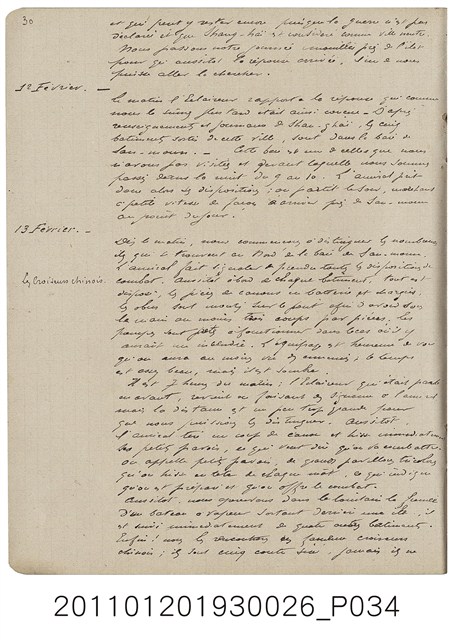 30
et qui peut y rester encore puisque la guerre n'est pas
déclarée et que Shang-haï est considéré comme ville neutre.
Nous passons notre journée mouillés près de l'îlot
pour qu'aussitôt la réponse arrivée, l'on de nous
puisse aller la chercher.
12 Février. -
Le matin l'Eclaireur rapporte la réponse qui comme
nous le sûmes plus tard était ainsi conçue : D'après
renseignements et journaux de Shang-haï, les cinq
bâtiments sortis de cette ville, sont dans la baie de
San-moun. - Cette baie est une de celles que nous
n'avons pas visitées et devant laquelle nous sommes
passés dans la nuit du 9 au 10. L'amiral prit
donc alors ses dispositions ; on partit le soir, marchant
à petite vitesse de façon à arriver près de San-moun
au point du jour.
13 Février. -
Dès le matin, nous commençons à distinguer les nombreux
îlots qui se trouvent au Nord de la baie de San-moun.
Les Croiseurs chinois.
L'amiral fait signaler de prendre toutes les dispositions de
combat. Aussitôt à bord de chaque bâtiment, tout est
disposé ; les pièces de canons en batterie et chargées
les obus sont montés sur le pont afin d'avoir sous
la main au moins trois coups par pièces, les
pompes sont prêtes à fonctionner dans le cas où il y
aurait un incendie. L'équipage est heureux de voir
qu'on aura au moins vu des ennemis ; le temps
est assez beau, mais il est sombre.
Il est 7 heures du matin : l'Eclaireur qui était parti
en avant, revient en faisant des signaux à l'amiral
mais la distance est un peu trop grande pour
que nous puissions les distinguer. Aussitôt
l'amiral tire un coup de canon et hisse immédiatement
ses petits pavois, ce qui veut dire qu'on va combattre.
On appelle petits pavois, de grands pavillons tricolores
qu'on hisse en tête de chaque mât, ce qui indique
qu'on est préparé et qu'on offre le combat.
Aussitôt, nous apercevons dans le lointain la fumée
d'un bateau à vapeur sortant derrière une île, il
est suivi immédiatement de quatre autres bâtiments.
Enfin ! nous les rencontrons ces fameux croiseurs
chinois ; ils sont cinq contre six, jamais ils ne
201101201930026_P034